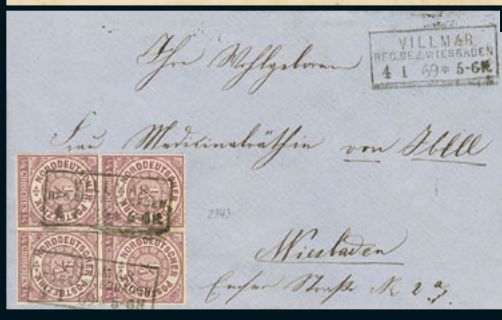 VILLMAR
REG.BEZ.WIESBADEN
4 1 69 * 5-6N
Ihro Wohlgeboren
Frau Medicinalräthin von Ibell
2343
Wiesbaden
Emser Straße N. 2 a.
NORDDEUTSCHER POSTBEZIRK
NORDDEUTSCHER POSTBEZIRK
NORDDEUTSCHER POSTBEZIRK
NORDDEUTSCHER POSTBEZIRK